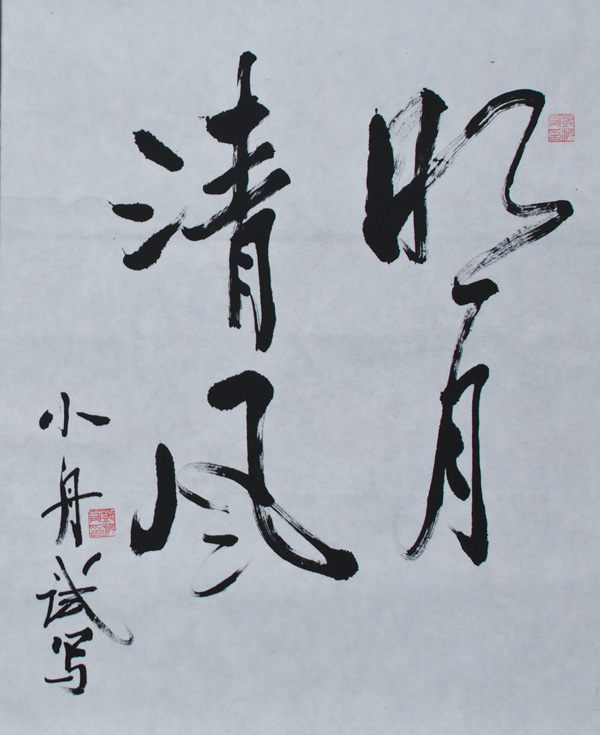 明月
清风
小舟试写